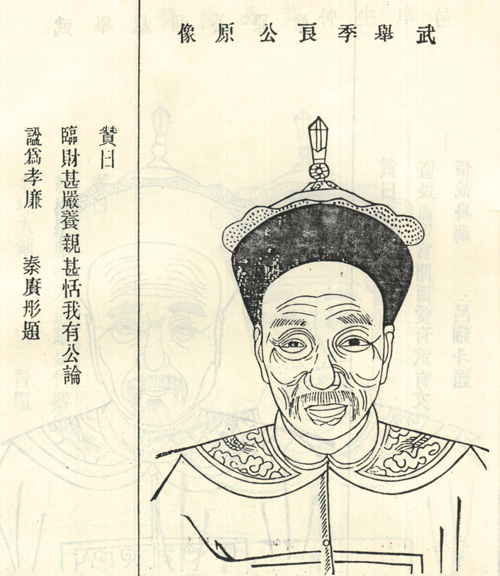 武舉季良公原像
贊曰
臨財甚嚴養親甚恬我有公論
謚爲孝廉　秦賡彤題